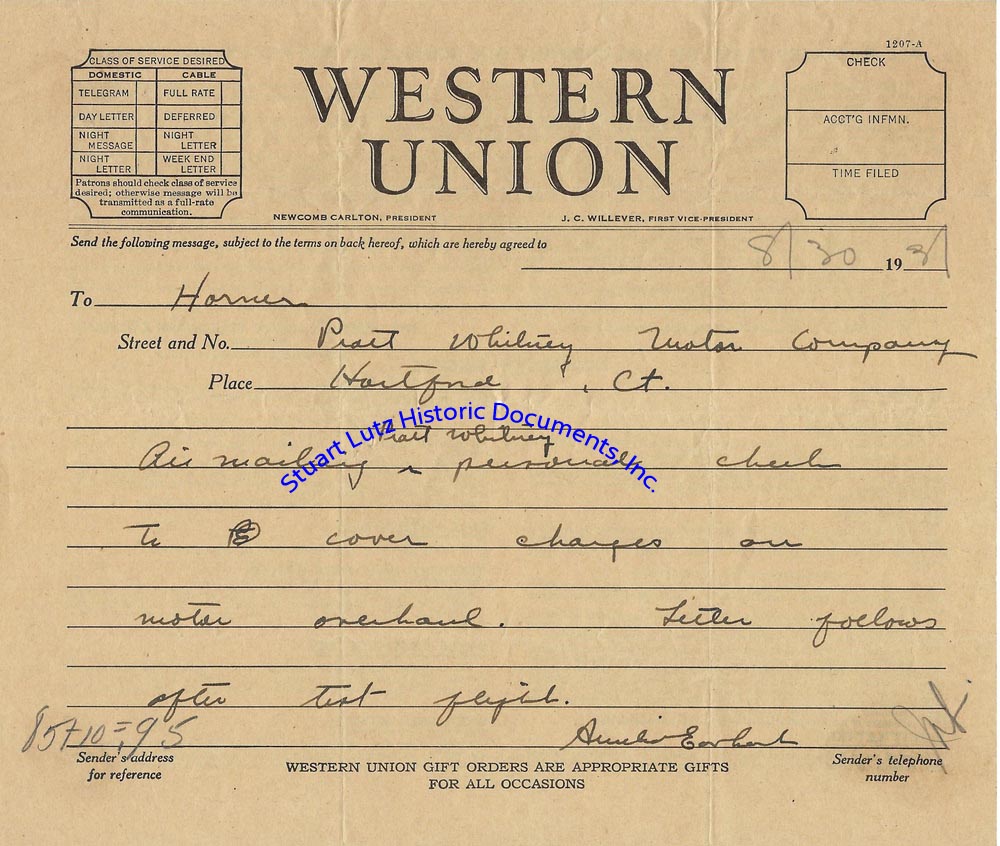 1207-A
CLASS OF SERVICE DESIRED
DOMESTIC CABLE
TELEGRAM FULL RATE
DAY LETTER DEFERRED
NIGHT MESSAGE NIGHT LETTER
NIGHT LETTER WEEK END LETTER
Patrons should check class of service
desired; otherwise message will be
transmitted as a full-rate
communication.
WESTERN
UNION
NEWCOMB CARLTON, PRESIDENT J. C. WILLEVER, FIRST VICE-PRESIDENT
CHECK
ACCT'G INFMN.
TIME FILED
Send the following message, subject to the terms on back hereof, which are hereby agreed to
8/30 1931
To Horner
Street and No. Pratt Whitney Motor Company
Place Hartford, Ct.
Stuart Lutz Historic Documents, Inc.
Pratt Whitney
Air mailing ^ personal check
to cover charges on
motor overhaul. Letter follows
after test flight.
85+10=95 Amelia Earhart
Sender's address
for reference
WESTERN UNION GIFT ORDERS ARE APPROPRIATE GIFTS
FOR ALL OCCASIONS
Sender's telephone
number